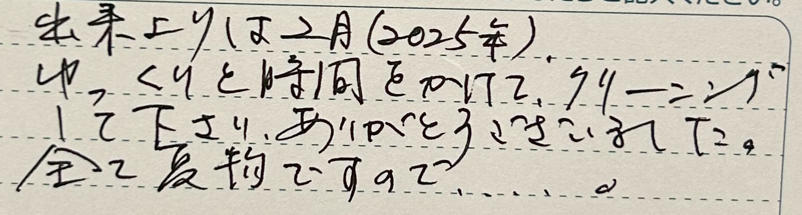 出来上りは2月(2025年)、
ゆっくりと時間をかけて、クリーニング
して下さり、ありがとうございました。
全て夏物ですので......。